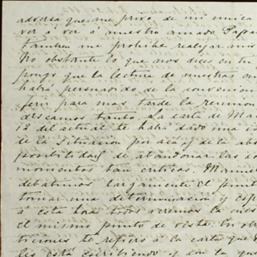 adversa que me priva de mi unica
vez á ver á nuestro amado Papá
tambien me prohibe realizar
No obstante lo que nos dices en tu
pongo que la lectura de nuestras
habrá persuadido de la conveniencia
ferir para mas tarde la reunion
deseamos tanto. La carta de
13 del actual te habrá dado una
de la situacion por acá y de la
posibilidad de abandonar las
momentos tan criticos.
debatimos largamente el punto
tomar una determinacion y
á esta hora todos veremos la
el mismo punto de vista. En
ticiones te refiero á la carta que
les está escribiendo y con la que